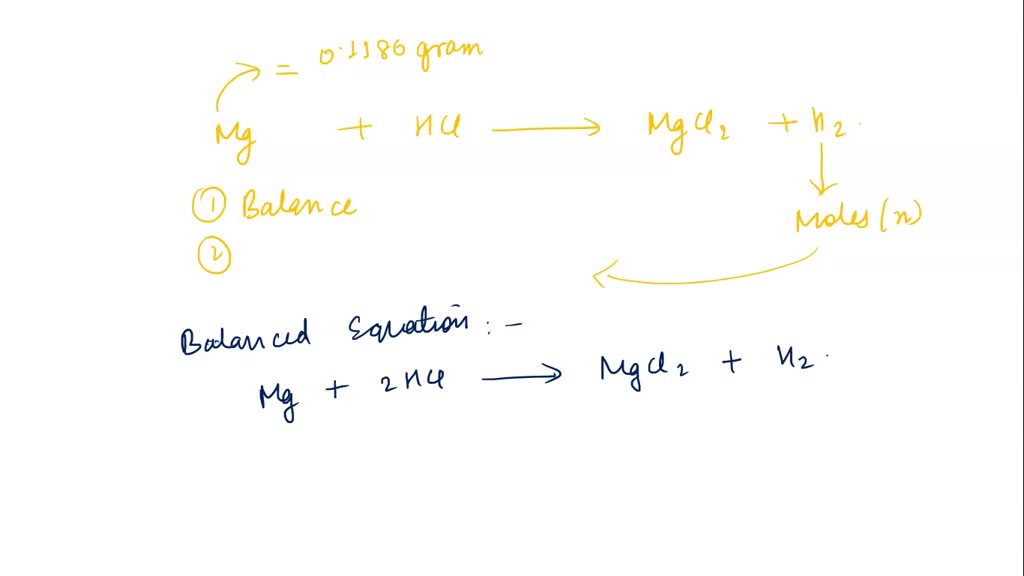 = 0.1186 gram
Mg + HCl ⟶ MgCl₂ + H₂.
① Balance
Moles (n)
②
Balanced Equation : –
Mg + 2HCl ⟶ MgCl₂ + H₂.